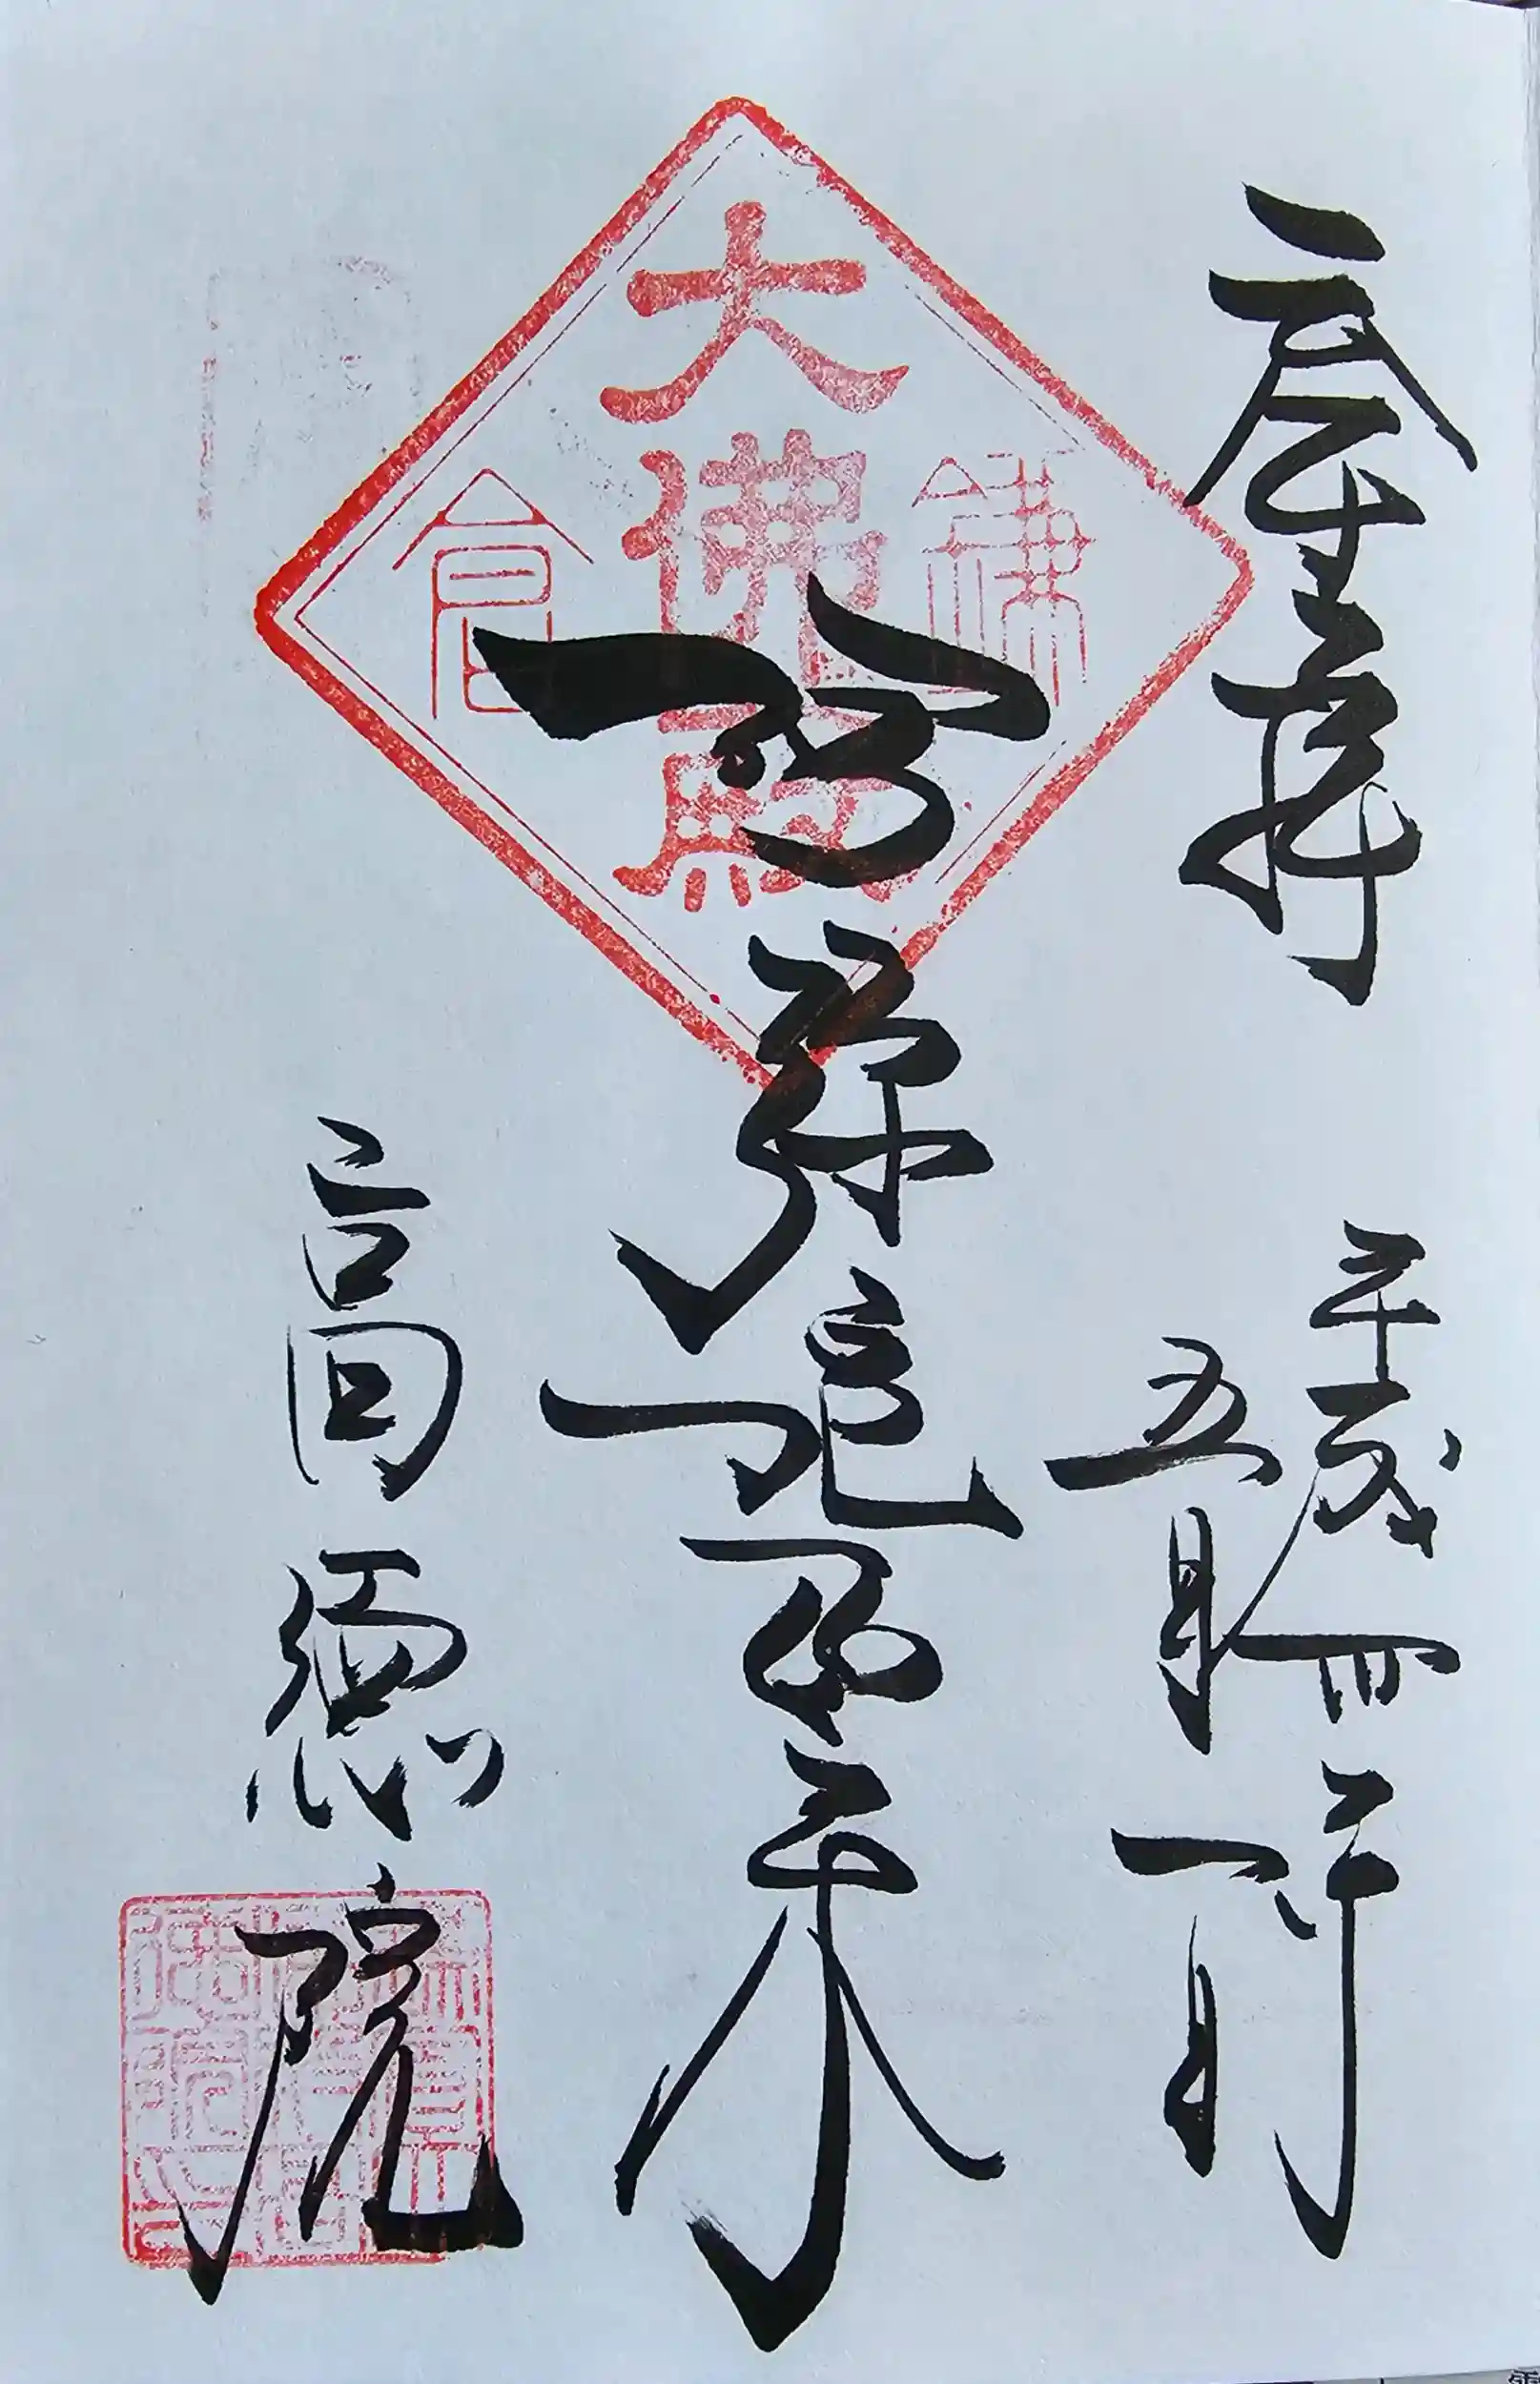 奉拝
平成卅年
五月一日
大佛殿
鎌倉
阿弥陀如来
高徳院